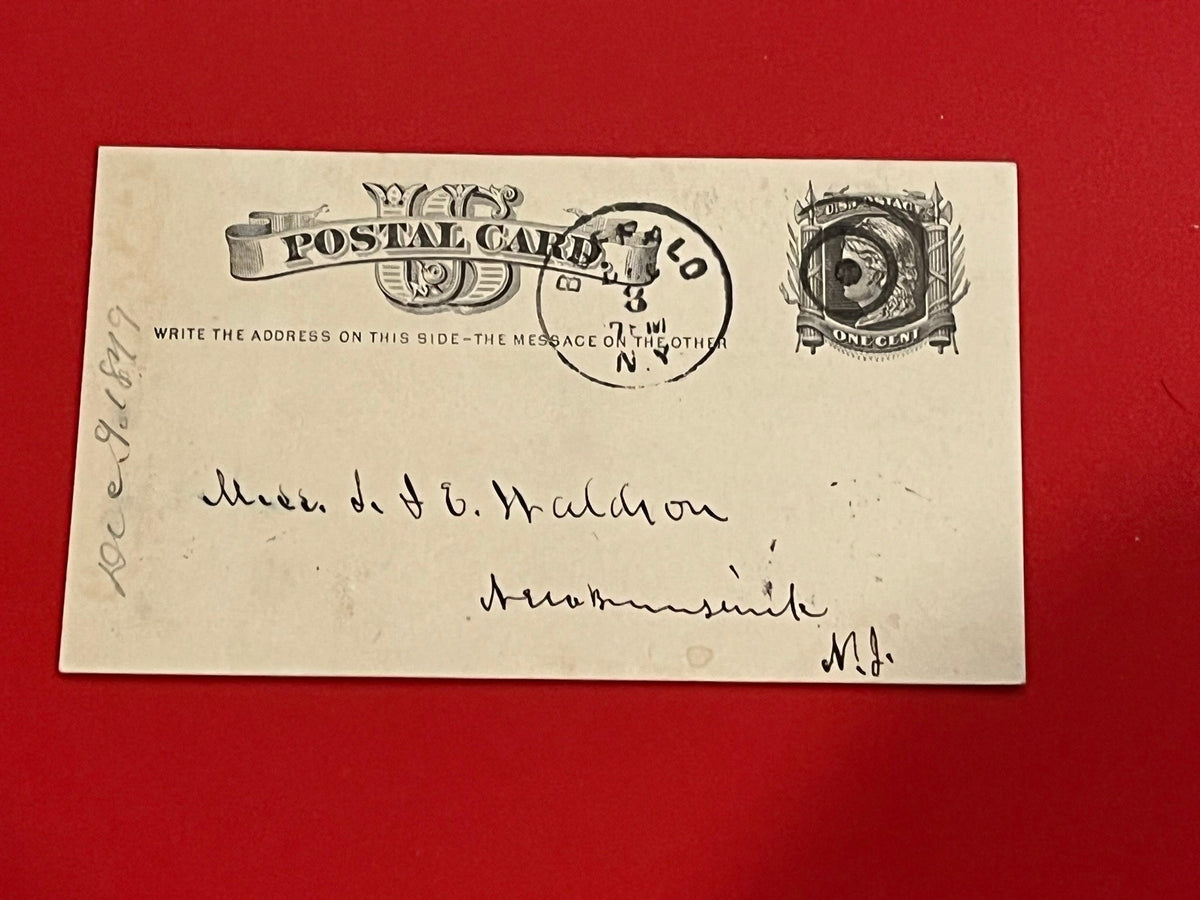 US
POSTAL CARD
U.S. POSTAGE
ONE CENT
WRITE THE ADDRESS ON THIS SIDE-THE MESSAGE ON THE OTHER
BUFFALO
8
N.Y
Dec 9. 1879
Miss. S. E. Waldron
New Brunswick
N.J.